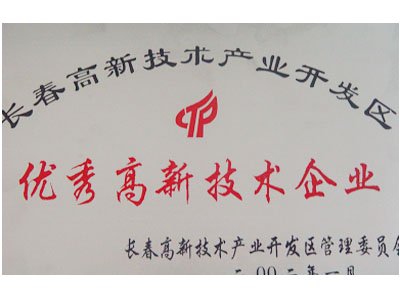 长春高新技术产业开发区
优秀高新技术企业
长春高新技术产业开发区管理委员会
二00二年一月